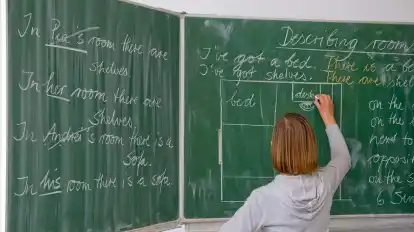 In Pia's room there are
shelves
In her room there are
shelves.
In Andrei's room there is a
sofa.
In his room there is a sofa.
Describing room
I've got a bed. There is a be
I've got shelves. There are shel
bed
desk
on the
on the
next to
opposit
on the s